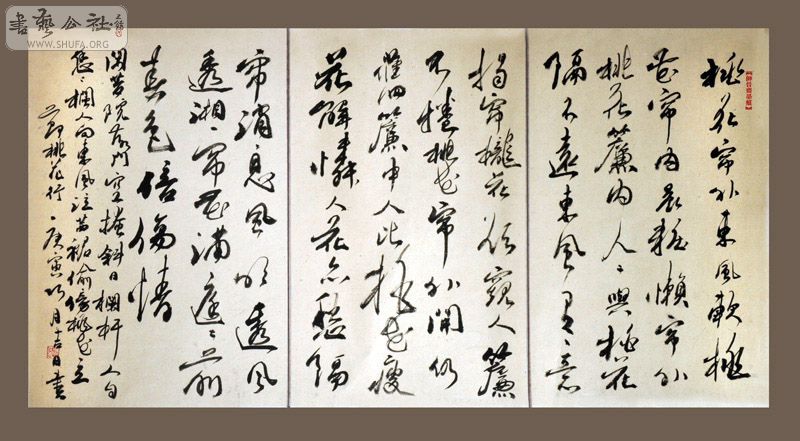 書藝公社
WWW.SHUFA.ORG
桃花帘外東風軟桃
花帘内晨粧懶帘外
桃花簾内人々與桃花
隔不遠東風有意
揭帘櫳花欲窺人簾
不捲桃花帘外開仍
舊簾中人比桃花瘦
花解憐人花亦愁隔
帘消息風吹透風
透湘帘花滿庭々前
春色倍傷情
閑苔院落門空掩斜日欄杆人自
憑々欄人向東風泣茜裙偷傍桃花立
節桃花行 庚寅 月 吉日書